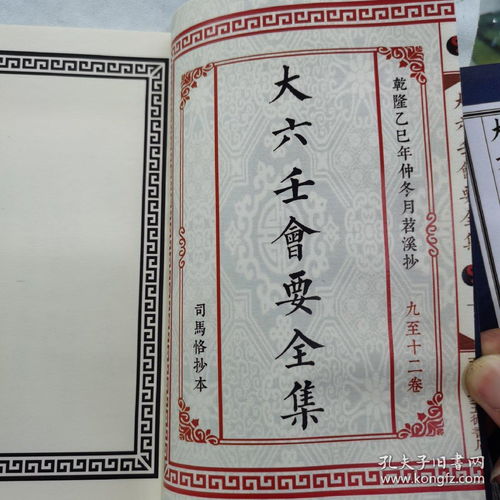 乾隆乙巳年仲冬月苕溪抄
九至十二卷
大六壬會要全集
司馬恪抄本
孔夫子旧书网
www.kongfz.com